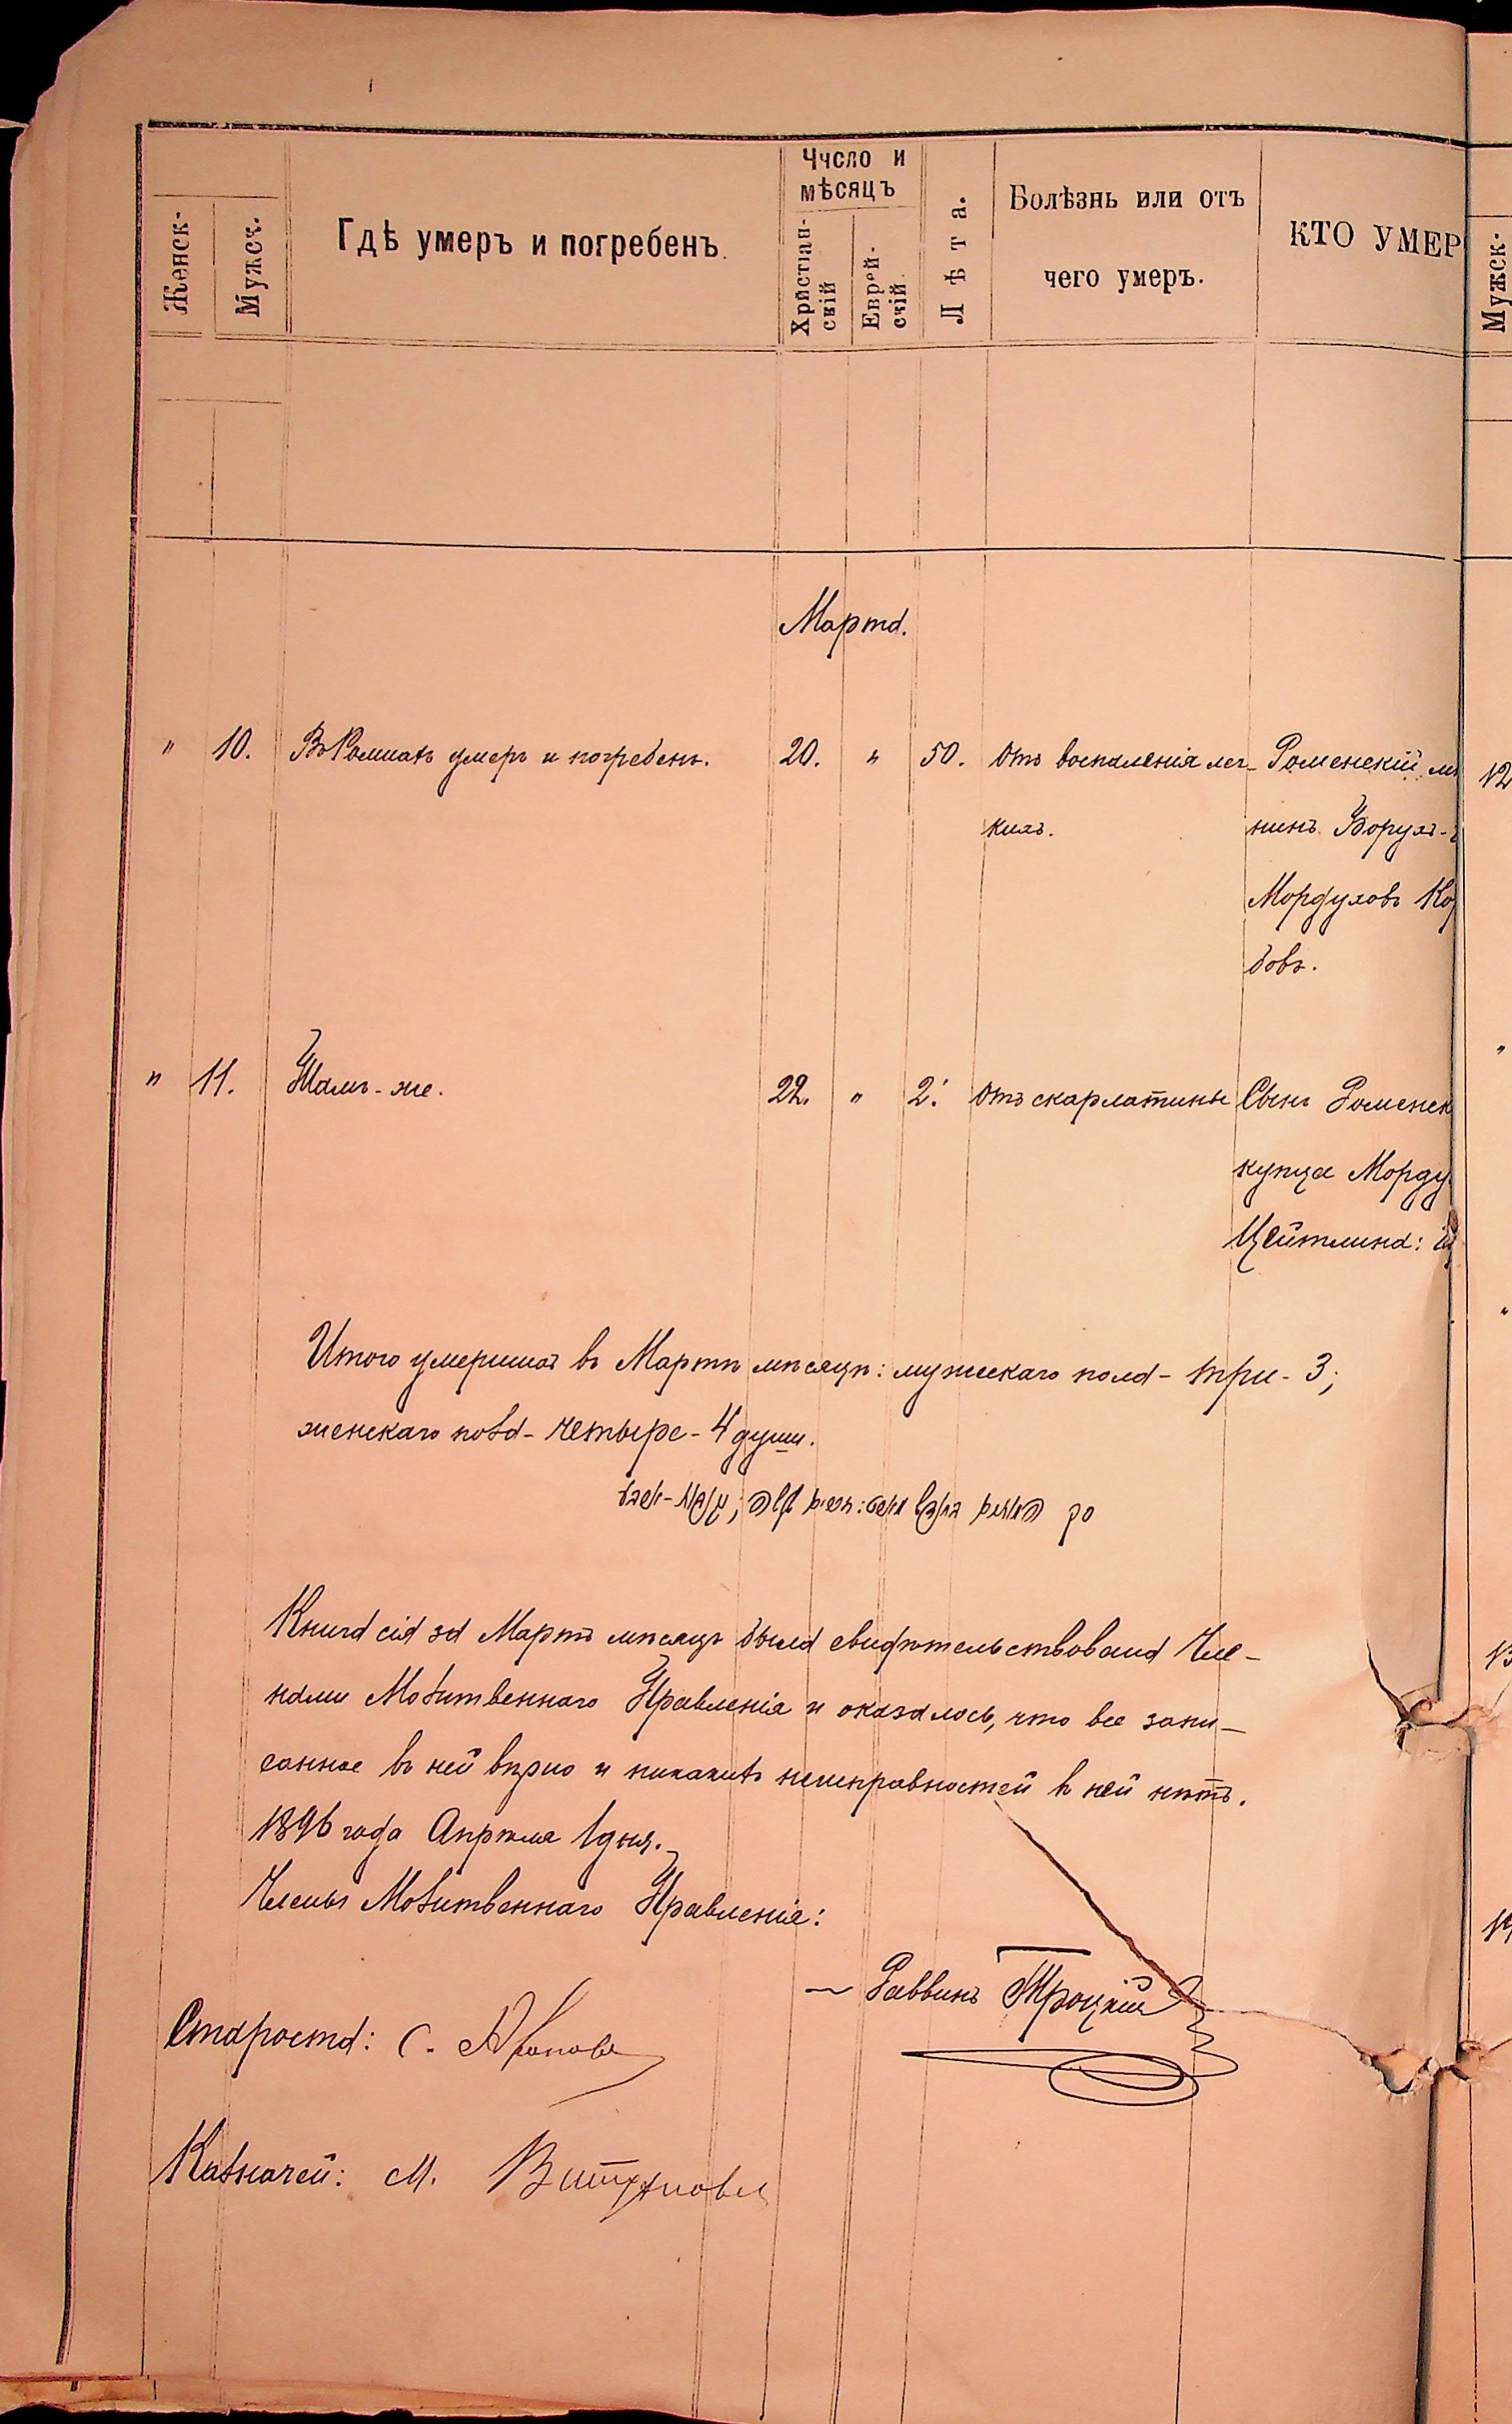 Женск-
Мужск.
Гдѣ умеръ и погребенъ.
Число и
мѣсяцъ
Христіан-
скій
Еврей-
скій.
Лѣта.
Болѣзнь или отъ
чего умеръ.
КТО УМЕР
Мужск-
Марта.
" 10. Въ Ромнахъ умеръ и погребенъ. 20. " 50. Отъ воспаленія лег- Роменскій мѣ
кихъ. нинъ Борухъ-
Мордуховъ Ко
бовъ.
12
" 11. Тамъ-же. 22. " 2. Отъ скарлатины Сынъ Роменск
купца Морду
Цейтлина:
Итого умершихъ въ Мартѣ мѣсяцѣ: мужескаго пола - три - 3;
женскаго пола - четыре - 4 души.
Книга сія за Мартъ мѣсяцъ была свидѣтельствована Чле-
нами Молитвеннаго Правленія и оказалось, что все запи-
санное въ ней вѣрно и никакихъ неисправностей в ней нѣтъ.
1896 года Апрѣля 1 дня.
Члены Молитвеннаго Правленія:
Раввинъ Троцкій
Староста: С.
Казначей: М.